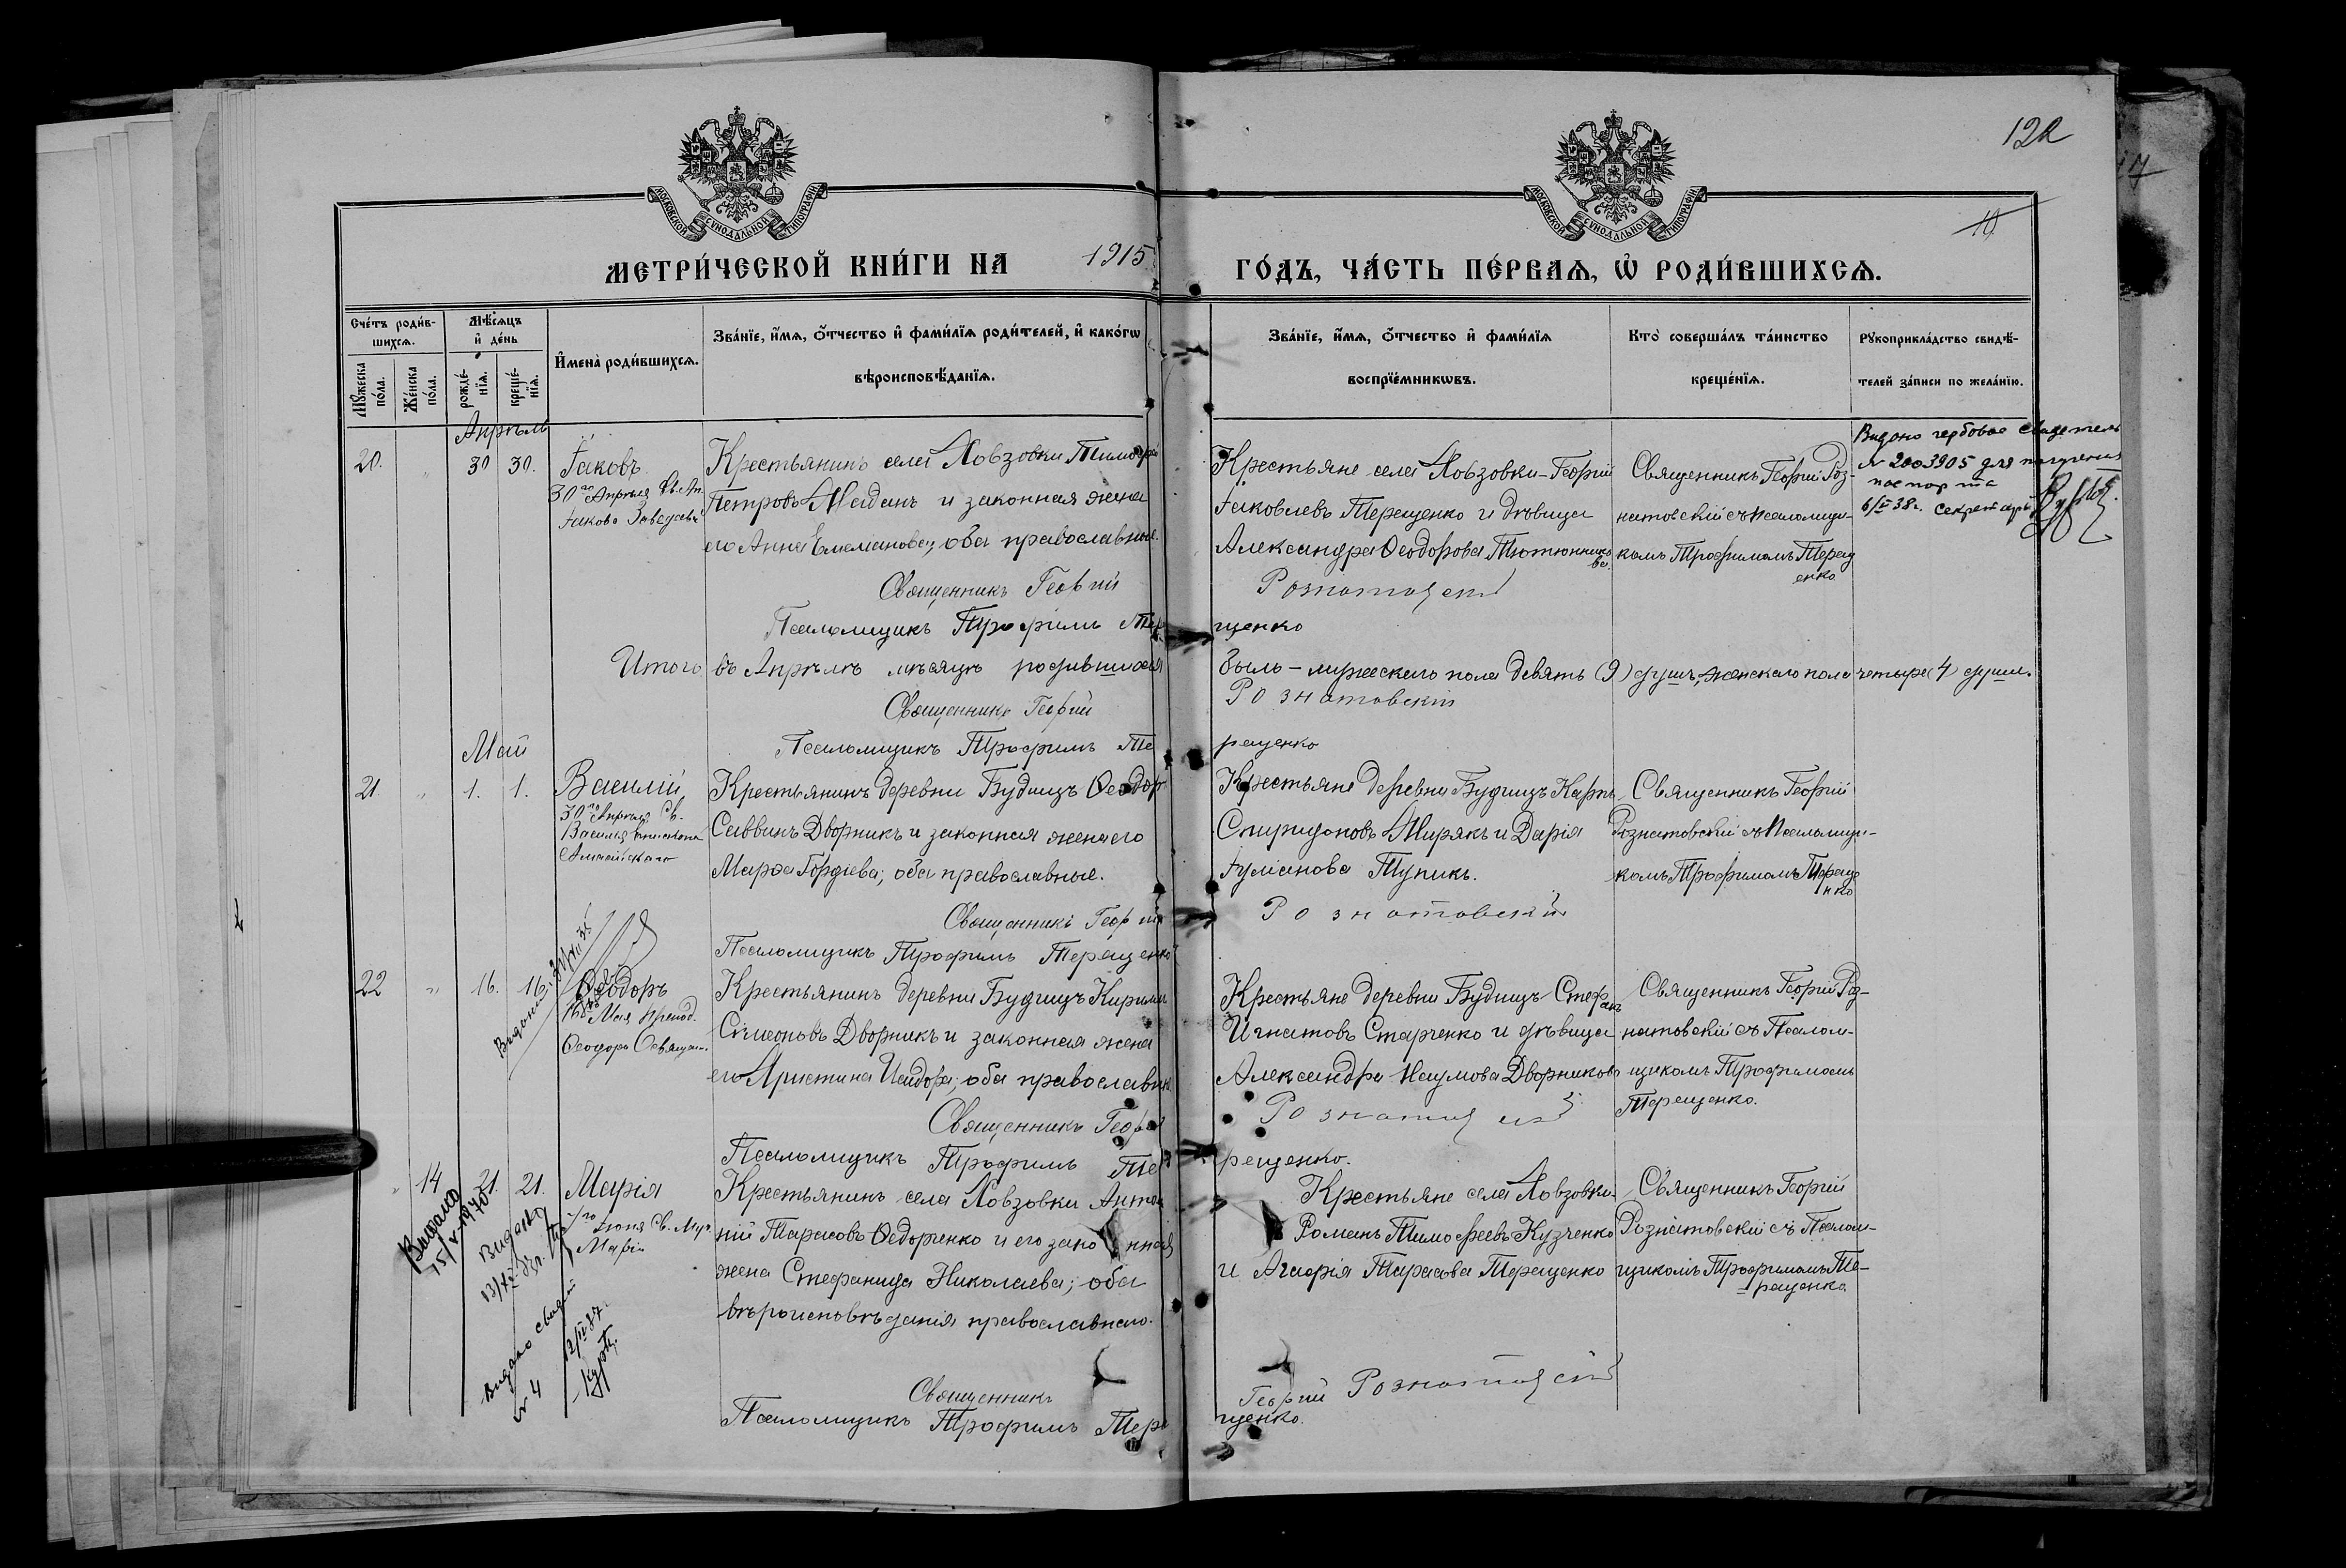 122
10
МОСКОВСКОЙ СѴНОДАЛЬНОЙ ТИПОГРАФІИ
МОСКОВСКОЙ СѴНОДАЛЬНОЙ ТИПОГРАФІИ
МЕТРИ́ЧЕСКОЙ КНИ́ГИ НА 1915 ГО́ДЪ, ЧА́СТЬ ПЕ́РВАѦ, Ѡ҆ РОДИ́ВШИХСѦ.
Сче́тъ роди́в-
шихсѧ.
Мꙋ́жеска по́ла.
Же́нска по́ла.
Мѣ́сѧцъ
и҆ де́нь
рожде́-
нїѧ.
креще́-
нїѧ.
И҆мена̀ роди́вшихсѧ.
Зва́нїе, и҆́мѧ, ѻ҆́тчество и҆ фами́лїѧ роди́телей, и҆ како́гѡ
вѣроисповѣ́данїѧ.
Зва́нїе, и҆́мѧ, ѻ҆́тчество и҆ фами́лїѧ
воспрїе́мникѡвъ.
Кто̀ соверша́лъ та́инство
креще́нїѧ.
Рꙋкоприкла́дство свидѣ́-
телей за́писи по жела́нїю.
Апрѣль
20. " 30 30.
Іаковъ
30го Апрѣля Св. Ап.
Іакова Заведеева
Крестьянинъ села Ловзовки Тимофей
Петровъ Мейданъ и законная жена
его Анна Емелианова; оба православные.
Священникъ Георгій
Псаломщикъ Трофимъ Тер
Крестьяне села Ловзовки - Георгій
Іаковлевъ Терещенко и дѣвица
Александра Ѳеодорова Тютюннико
ва.
Розно
щенко
Священникъ Георгій Роз-
натовскій съ псаломщи-
комъ Трофимомъ Терещ
енко
Видано гербовое свидетель
№ 2003905 для получения
паспорта
6/ 38г. Секретарь
Итого въ Апрѣлѣ мѣсяцѣ родившихся было - мужескаго пола девять (9) душъ, женскаго пола четыре (4) души.
Священникъ Георгій Розматовскій
Псаломщикъ Трофимъ Те рещенко
Май
21. " 1. 1.
Василій,
30го Апрѣля Св.
Василія Епископа
Амасійскаго
Крестьянинъ деревни Будищъ Ѳеодор
Саввинъ Дворникъ и законная жена его
Марѳа Гордіева; оба православные.
Священникъ Георгій
Псаломщикъ Трофимъ Терещенко
Крестьяне деревни Будищъ Карпъ
Спиридоновъ Жирякъ и Дарія
Іуліанова Тупикъ.
Розматовскій
Священникъ Георгій
Рознатовскій съ Псаломщи-
комъ Трофимомъ Тереще
нко
22 " 16. 16.
Ѳеодоръ
16го Мая препод.
Ѳеодора Освящен.
Крестьянинъ деревни Будищъ Кирилл
Сѵмеоновъ Дворникъ и законная жена
его Христина Исидора; оба православн
Священникъ Георгій
Псаломщикъ Трофимъ Те
Крестьяне деревни Будищъ Стефанъ
Игнатовъ Старченко и дѣвица
Александра Наумова Дворникова
рещенко.
Священникъ Георгій Роз-
натовскій съ Псалом-
щикомъ Трофимомъ
Терещенко.
" 14 21. 21.
Марія
1го Іюня Св. Муч.
Маріи
Крестьянинъ села Ловзовки Анто
ній Тарасовъ Ѳедоренко и его зако нная
жена Стефанида Николаева; оба
вѣроисповѣданія православнаго.
Священникъ
Псаломщикъ Трофимъ Тере
Крестьяне села Ловзовки
Романъ Тимофеевъ Кузченко
и Агафія Тарасова Терещенко
Георгій
щенко.
Священникъ Георгій
Рознатовскій съ Псалом-
щикомъ Трофимомъ Те-
рещенко.
Видано
15/V-1940
Видано
Видано
№ 4